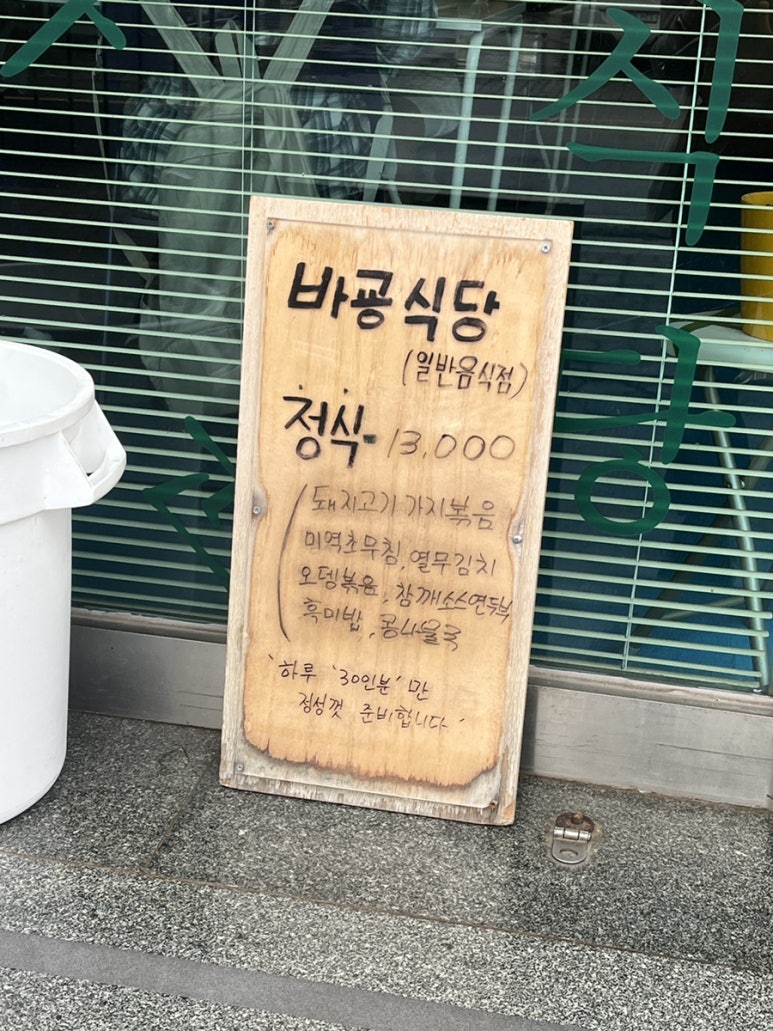 식
당
바굥식당
(일반음식점)
정식- 13,000
(돼지고기 가지볶음
미역초무침, 열무김치
오뎅볶음, 참깨소스연두부
흑미밥, 콩나물국
'하루 '30인분' 만
정성껏 준비합니다'